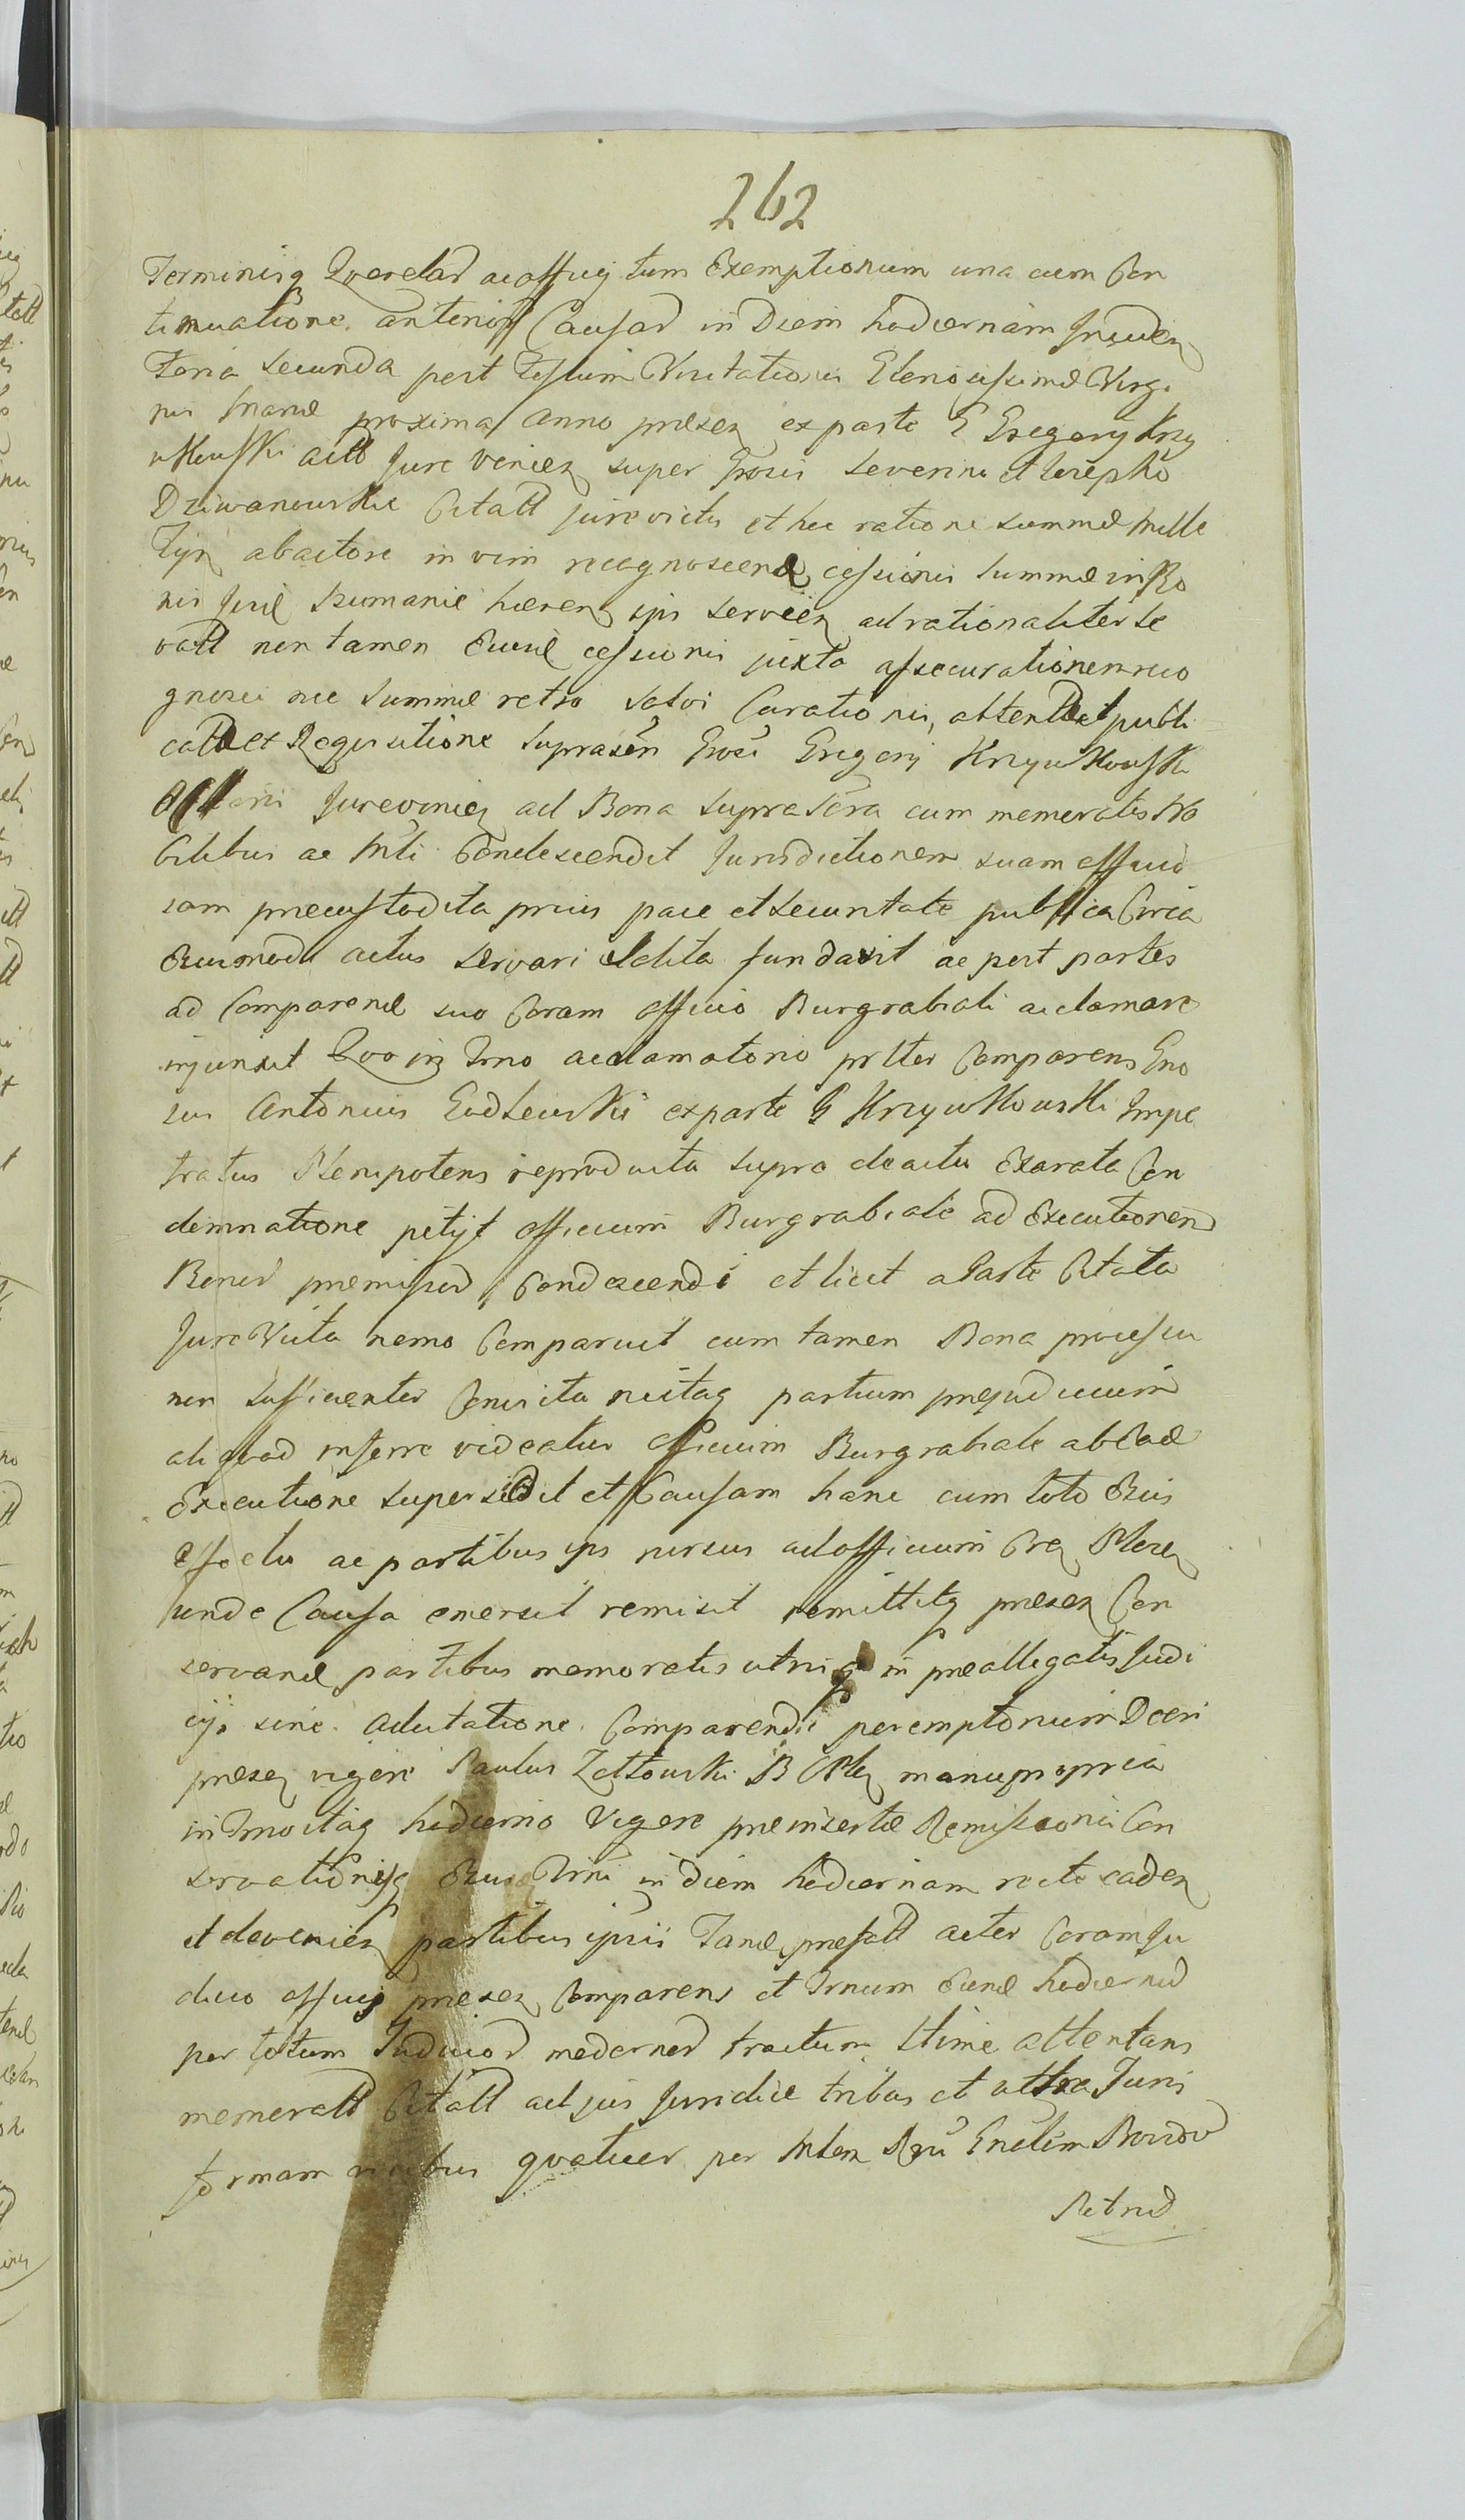 262
Terminisq Querelar ac officij tum Exemptionum una cum Con
tinuatione anterior Causar in Diem hodiernam Inciden
Feria secunda post Festum Visitationis Gloriosissimae Virgi
nis Mariae proxima Anno praesen ex parte G Gregorij Krzy
wkowski act Jure vincen super Grosis Severino et Josepho
Dziwanowskie Citatt jure victis et hoc ratione summae Mille
Tijn ab actore in vim recognoscend cessionis summae in Bo
nis haeren ipis servien ad rationaliter le
vatt non tamen Eiusd cessionis juxta assecurationem reco
gnosci nec summae retro salvi Curationis, obtentae et publi
catae ex Requisitione suprascri Grosi Gregorij Krzywkowski
Actoris Jurevincen ad Bona suprascra cum memoratis No
bilibus ac Mli Condescendit Jurisdictionem suam officio
sam praecustodita prius pace et securitate publica Circa
Eiusmodi actus servari solita fundavit ac post partes
ad Comparend suo Coram officio Burgrabiali acclamare
injunxit Quo in Trno acclamatorio prlter Comparens Gno
sus Antonius Godlewski ex parte G Krzywkowski Impe
tratus Plenipotens reproducta supra de actu Exarata Con
demnatione petijt officium Burgrabiale ad Executionem
Bonor praemissor Condescendi et licet a Parte Citata
Jure Victa nemo Comparuit cum tamen Bona processu
non sufficienter Convicta partium praejudicium
aliquod inferre videatur officium Burgrabiale ab Ead
Executione supersedit et Causam hanc cum toto Eius
effectu ac partibus ips rursus ad officium Cren Plocen
unde Causa emersit remisit remittitq praesen Con
servand partibus memoratis utrisq in praeallegatis Judi
cijs sine adcitatione Comparendi peremptorium Dceri
praesen vigore Paulus Zettowski B C Plen manu propria
in Trno itaq hodierno Vigore praeinsertae Remissionis Con
servationisq Eius Trni in diem hodiernam recte caden
et devenien partibus ipsis Tand praefatt actor Coram Ju
dicio officij praesen Comparens et Trnum Eund hodiernu
per totum Judicior modernor tractum ltime attentans
memoratt Citatt ad jus Juridice tribus et ultra Juris
formam vicibus quatuor per Mlem Gnelem Providu